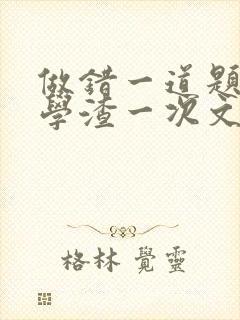 做錯一道題
學渣一次文
格林覺靈